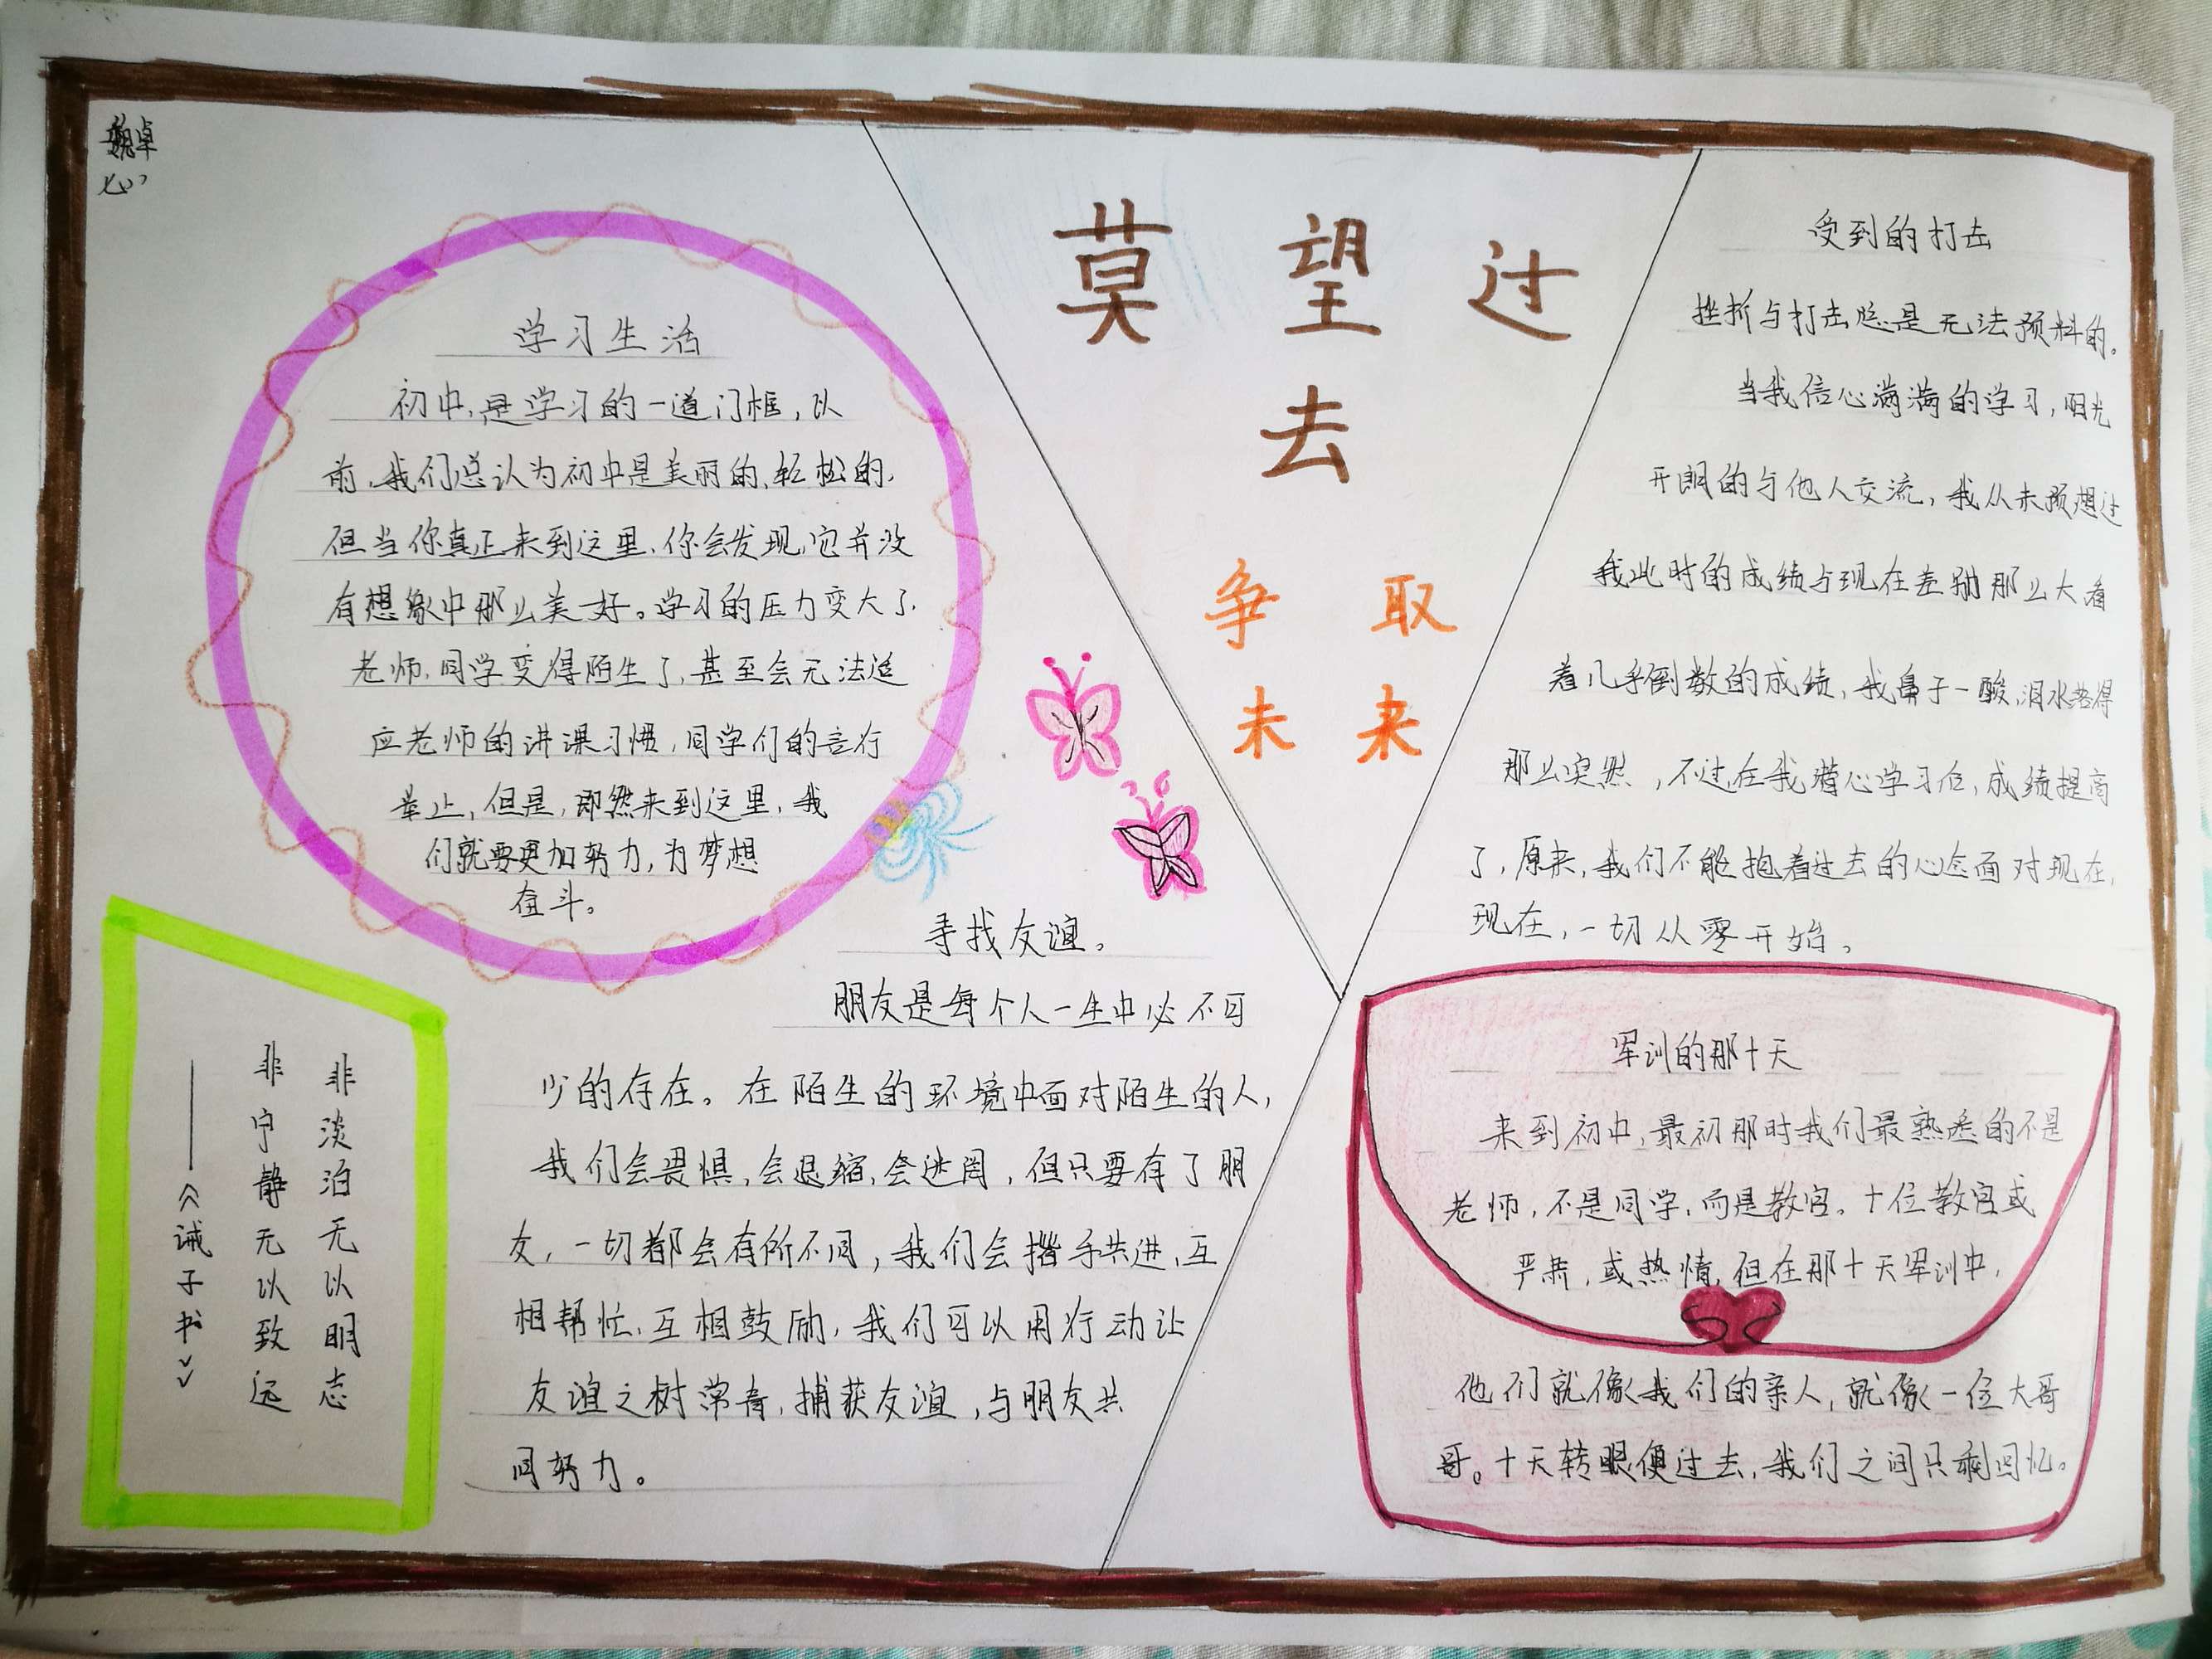 魏卓
心
莫望过
去
争取
未来
学习生活
初中,是学习的一道门框,以
前,我们总认为初中是美丽的,轻松的,
但当你真正来到这里,你会发现,它并没
有想象中那么美好。学习的压力变大了,
老师,同学变得陌生了,甚至会无法适
应老师的讲课习惯,同学们的言行
举止,但是,即然来到这里,我
们就要更加努力,为梦想
奋斗。
寻找友谊。
朋友是每个人一生中必不可
少的存在。在陌生的环境中面对陌生的人,
我们会畏惧,会退缩,会迷,但只要有了朋
友,一切都会有所不同,我们会携手共进,互
相帮忙,互相鼓励,我们可以用行动让
友谊之树常青,捕获友谊,与朋友共
同努力。
非淡泊无以明志
非宁静无以致远
——《诫子书》
受到的打击
挫折与打击总是无法预料的。
当我信心满满的学习,阳光
开朗的与他人交流,我从未预想过
我此时的成绩与现在差别那么大看
着几乎倒数的成绩,我鼻子一酸,泪水落得
那么突然,不过,在我潜心学习后,成绩提高
了,原来,我们不能抱着过去的心态面对现在,
现在,一切从零开始。
军训的那十天
来到初中,最初那时我们最熟悉的不是
老师,不是同学,而是教官。十位教官或
严肃,或热情,但在那十天军训中,
他们就像我们的亲人,就像一位大哥
哥。十天转眼便过去,我们之间只剩回忆。